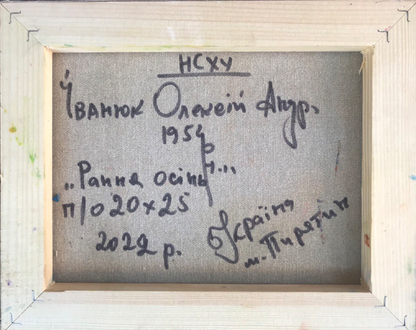 НСХУ
Іванюк Олексій Андр.
1954
р.н...
„Рання осінь"
п/о 20х25
2022 р.
Україна
м. Пирятин